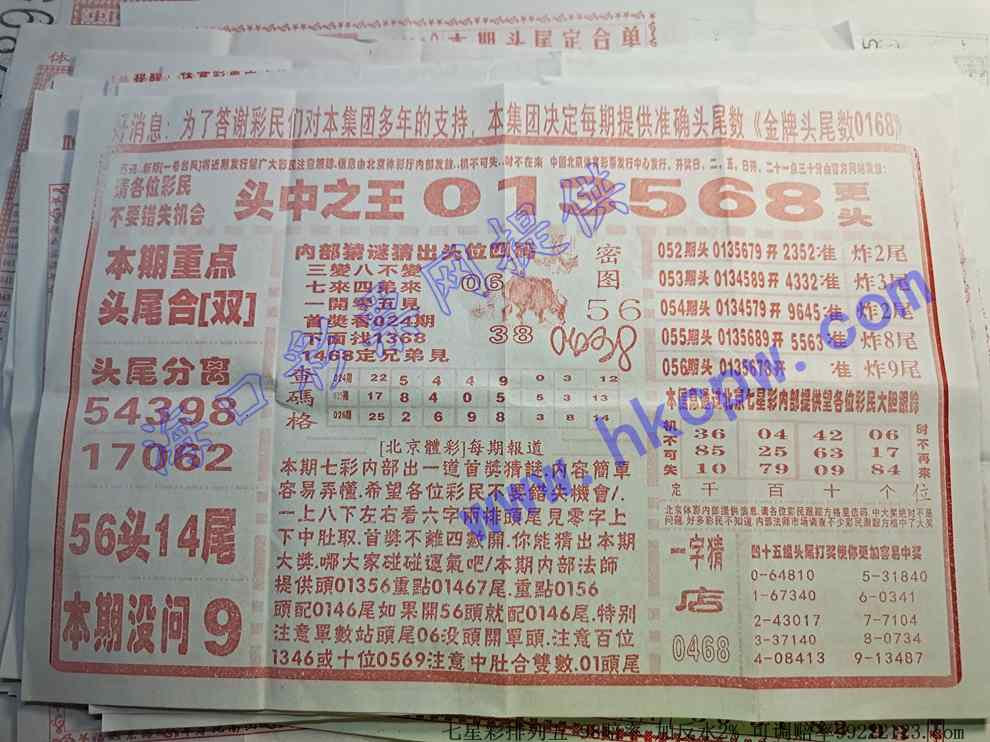 本期头尾定合单
好消息：为了答谢彩民们对本集团多年的支持，本集团决定每期提供准确头尾数《金牌头尾数0168》
请各位彩民
不要错失机会
头中之王 013568 更头
本期重点
头尾合[双]
头尾分离
54398
17062
56头14尾
本期没问 9
内部猜谜猜出头位四码
三變八不變
七來四弟來
一開零五見
首獎看024期
下面找1368
1468定兄弟見
06
38
密图
56
0438
查碼格
22 5 4 4 9 0 3 12
17 8 4 0 5 5
025期 25 2 6 9 8 3 8 14
[北京體彩]每期報道
本期七彩内部出一道首獎猜謎.内容簡單
容易弄懂.希望各位彩民不要錯失機會/.
一上八下左右看六字所排頭尾見零字上
下中肚取.首獎不離四數開.你能猜出本期
大獎.哪大家碰碰運氣吧/本期内部法師
提供頭01356重點01467尾.重點0156
頭配0146尾如果開56頭就配0146尾.特别
注意單數站頭尾06没頭開單頭.注意百位
1346或十位0569注意中肚合雙數.01頭尾
052期头 0135679 开 2352 准 炸2尾
053期头 0134589 开 4332 准 炸3尾
054期头 0134579 开 9645 准 炸2尾
055期头 0135689 开 5563 准 炸8尾
056期头 0135678 开 准 炸9尾
本信息通过北京七星彩内部提供望各位彩民大胆跟踪
机不可失
36 04 42 06
85 25 63 17
10 79 09 84
时不再来
定 千 百 十 个 位
一字猜
店
0468
四十五组头尾打奖使你更加容易中奖
0-64810 5-31840
1-67340 6-0341
2-43017 7-7104
3-37140 8-0734
4-08413 9-13487
海口彩票网提供
www.hkcpll.com